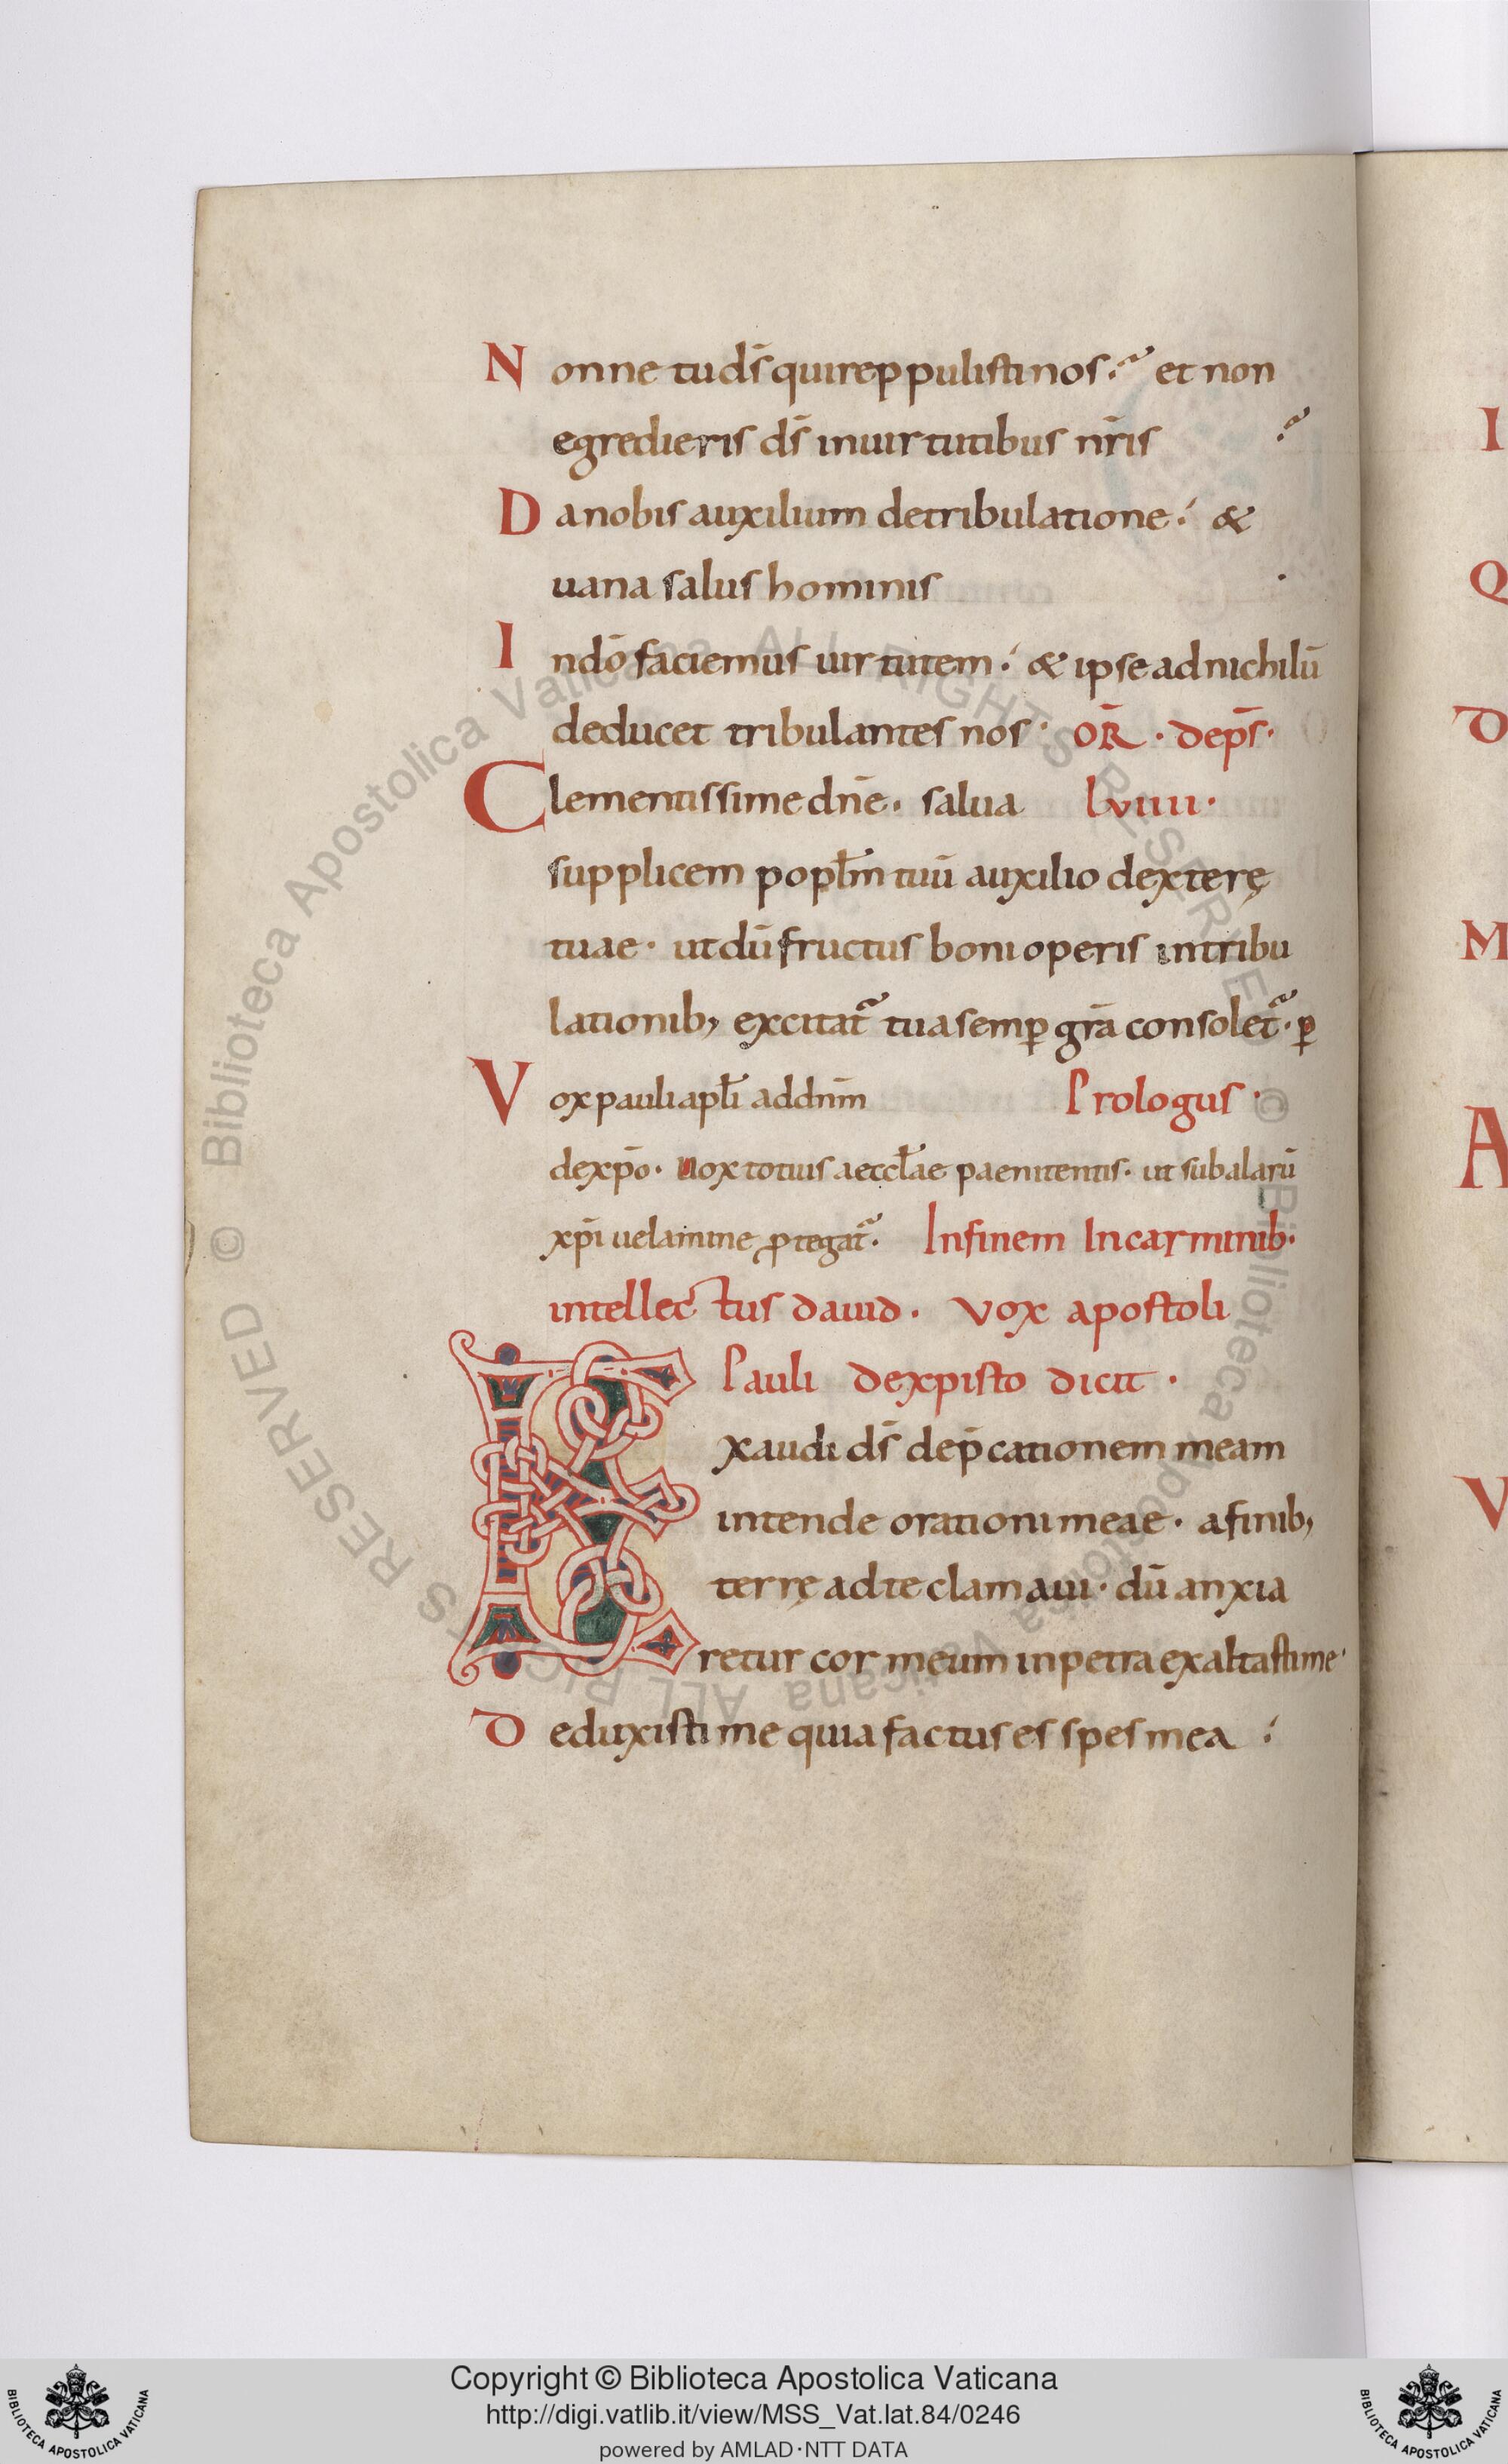 Nonne tu ds̄ qui reppulisti nos:' et non
egredieris ds̄ in uirtutibus nr̄is :'
Da nobis auxilium de tribulatione:' &
uana salus hominis .
In dō faciemus uirtutem:' & ipse ad nichilū
deducet tribulantes nos· OR̄ · de ps̄·
Clementissime dn̄e. salua lviiii·
supplicem popl̄m tuū auxilio dexterę
tuae· ut dū fructus boni operis in tribu
lationib; excitat̄ tua semꝑ grā consolet̄· ꝑ
Vox pauli apl̄i ad dn̄m Prologus·
de xp̄o· uox totius aeccl̄ae paenitentis· ut sub alarū
xp̄i uelamine ꝓtegat̄· In finem In carminib·
intellectus dauid· vox apostoli
Pauli de xpisto dicit ·
Exaudi ds̄ dep̄cationem meam
intende orationi meae· a finib;
terrę ad te clamaui· dū anxia
retur cor meum in petra exaltasti me·
Deduxisti me quia factus es spes mea :'
I
Q
D
M
A
V
Copyright © Biblioteca Apostolica Vaticana
http://digi.vatlib.it/view/MSS_Vat.lat.84/0246
powered by AMLAD·NTT DATA
BIBLIOTECA APOSTOLICA VATICANA
BIBLIOTECA APOSTOLICA VATICANA
© Biblioteca Apostolica Vaticana ALL RIGHTS RESERVED © Biblioteca Apostolica Vaticana ALL RIGHTS RESERVED